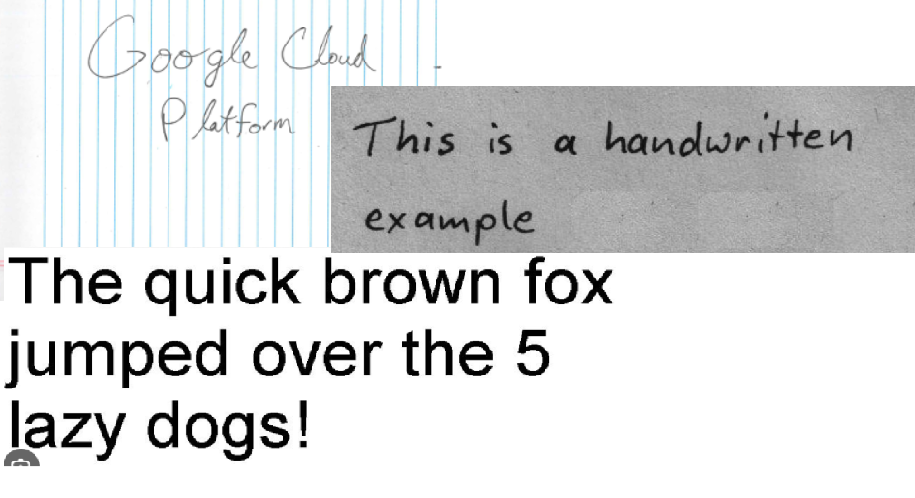 Google Cloud
Platform
This is a handwritten
example
The quick brown fox
jumped over the 5
lazy dogs!